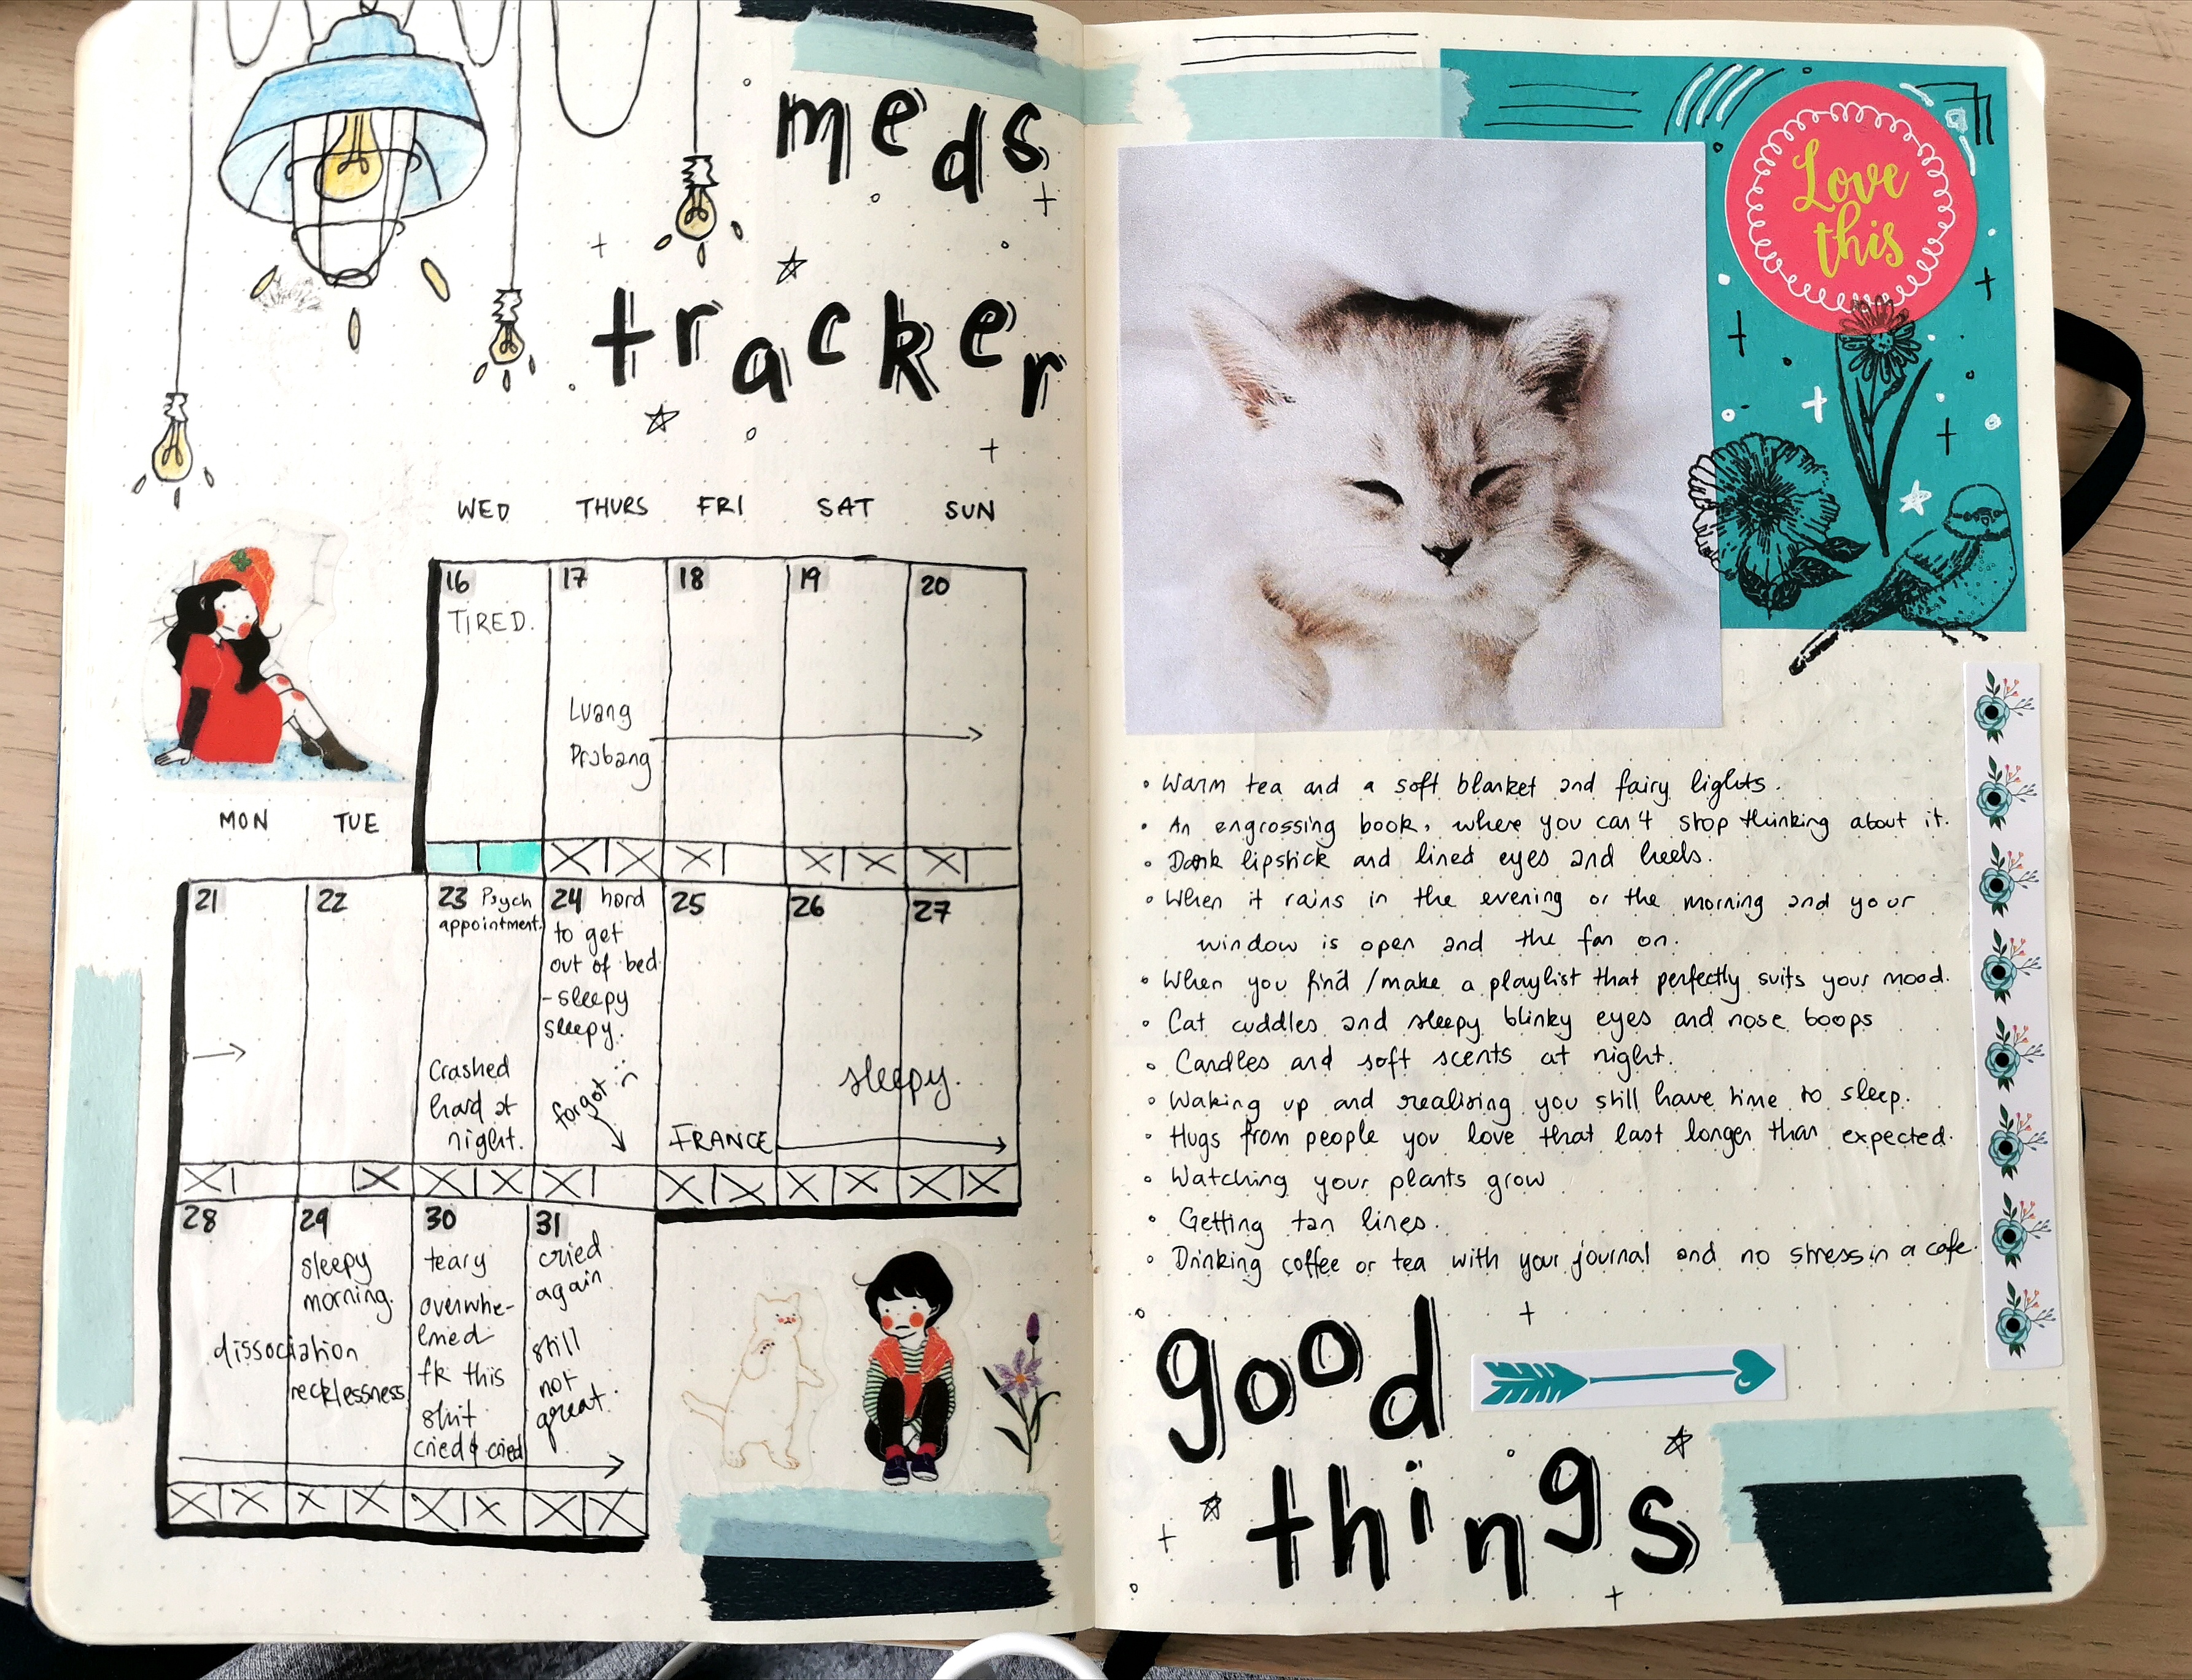 meds
tracker
WED THURS FRI SAT SUN
16 17 18 19 20
TIRED.
Luang
Prabang
MON TUE
21 22 23 Psych
appointment.
24 hard
to get
out of bed
- sleepy
sleepy.
25 26 27
Crashed
hard at
night.
forgot :(
sleepy.
FRANCE
28 29 30 31
sleepy
morning.
dissociation
recklessness
teary
overwhe-
lmed
fk this
shit
cried & cried
cried
again
still
not
great.
Love
this
• Warm tea and a soft blanket and fairy lights.
• An engrossing book, where you can't stop thinking about it.
• Dark lipstick and lined eyes and heels.
• When it rains in the evening or the morning and your
window is open and the fan on.
• When you find /make a playlist that perfectly suits your mood.
• Cat cuddles and sleepy blinky eyes and nose boops
• Candles and soft scents at night.
• Waking up and realising you still have time to sleep.
• Hugs from people you love that last longer than expected.
• Watching your plants grow
• Getting tan lines.
• Drinking coffee or tea with your journal and no stress in a cafe.
good
things